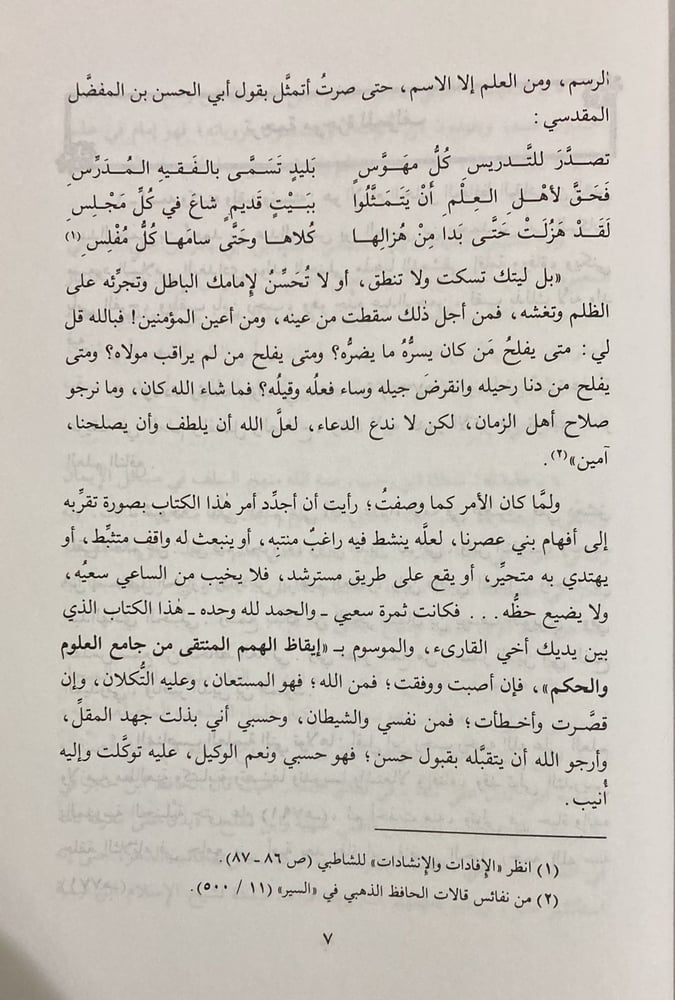 الرسم، ومن العلم إلا الاسم، حتى صرتُ أتمثَّل بقول أبي الحسن بن المفضَّل
المقدسي:
تصدَّرَ للتَّدريس كُلُّ مهَوَّسٍ بَليدٍ تَسَمَّى بالفَقيهِ المُدَرِّسِ
فَحَقَّ لأهْلِ العِلْمِ أَنْ يَتَمَثَّلُوا ببَيْتٍ قَديمٍ شاعَ في كُلِّ مَجْلِسِ
لَقَدْ هَزُلَتْ حَتَّى بَدا مِنْ هُزالِها كُلاها وحَتَّى سامَها كُلُّ مُفْلِسِ(١)
«بل ليتك تسكت ولا تنطق، أو لا تُحَسِّنُ لإمامك الباطل وتجرِّئه على
الظلم وتغشه، فمن أجل ذٰلك سقطت من عينه، ومن أعين المؤمنين! فبالله قل
لي: متى يفلحُ مَن كان يسرُّهُ ما يضرُّه؟ ومتى يفلح من لم يراقب مولاه؟ ومتى
يفلح من دنا رحيله وانقرضَ جيله وساء فعلُه وقيلُه؟ فما شاء الله كان، وما نرجو
صلاح أهل الزمان، لكن لا ندع الدعاء، لعلَّ الله أن يلطف وأن يصلحنا،
آمين»(٢).
ولمَّا كان الأمر كما وصفتُ؛ رأيت أن أجدِّد أمر هٰذا الكتاب بصورة تقرِّبه
إلى أفهام بني عصرنا، لعلَّه ينشط فيه راغبٌ منتبِه، أو ينبعث له واقف متثبِّط، أو
يهتدي به متحيِّر، أو يقع على طريق مسترشد، فلا يخيب من الساعي سعيُه،
ولا يضيع حظُّه... فكانت ثمرة سعيي ـ والحمد لله وحده ـ هٰذا الكتاب الذي
بين يديك أخي القارىء، والموسوم بـ «إيقاظ الهمم المنتقى من جامع العلوم
والحكم»، فإن أصبت ووفقت؛ فمن الله؛ فهو المستعان، وعليه التُّكلان، وإن
قصَّرت وأخطأت؛ فمن نفسي والشيطان، وحسبي أني بذلت جهد المقلِّ،
وأرجو الله أن يتقبَّله بقبول حسن؛ فهو حسبي ونعم الوكيل، عليه توكَّلت وإليه
أُنيب.
(١) انظر «الإفادات والإنشادات» للشاطبي (ص ٨٦ ـ ٨٧).
(٢) من نفائس قالات الحافظ الذهبي في «السير» (١١ / ٥٠٠).
٧